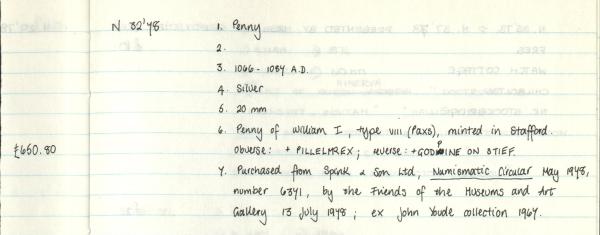 N 82'78 1. Penny
2.
3. 1066 - 1087 A.D.
4. Silver
5. 20 mm
6. Penny of William I, type viii (Paxs), minted in Stafford.
£650.80 obverse: + PILLELMREX; reverse: +GODPINE ON STIEF.
7. Purchased from Spink & Son Ltd, Numismatic Circular May 1978,
number 6371, by the Friends of the Museums and Art
Gallery 13 July 1978; ex John Youde collection 1967.